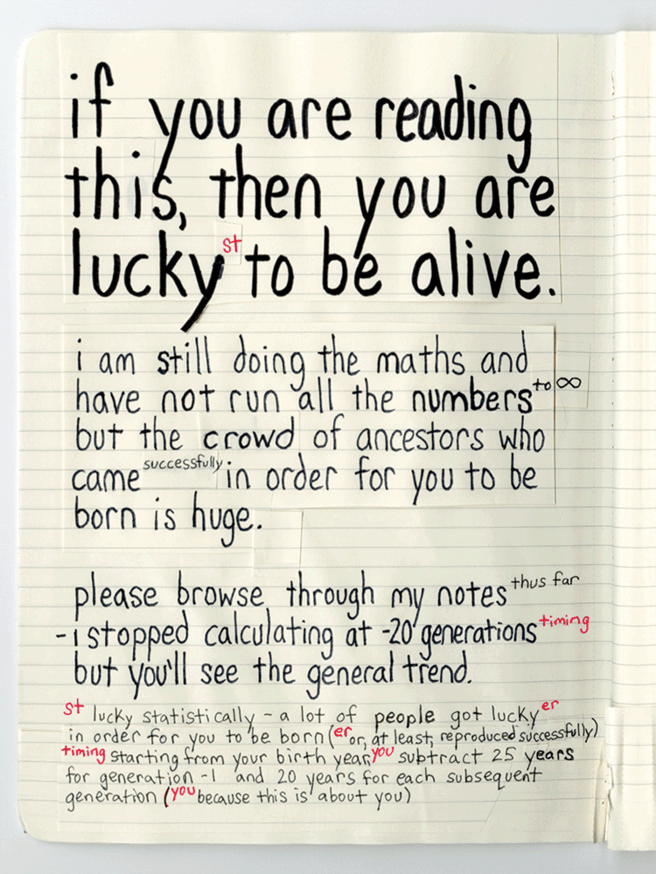 if you are reading
this, then you are
lucky st to be alive.
i am still doing the maths and
have not run all the numbers to ∞
but the crowd of ancestors who
came successfully in order for you to be
born is huge.
please browse through my notes thus far
- i stopped calculating at -20 generations timing
but you'll see the general trend.
st lucky statistically - a lot of people got lucky er
in order for you to be born (er or, at least, reproduced successfully)
timing starting from your birth year, you subtract 25 years
for generation -1 and 20 years for each subsequent
generation (you because this is about you)